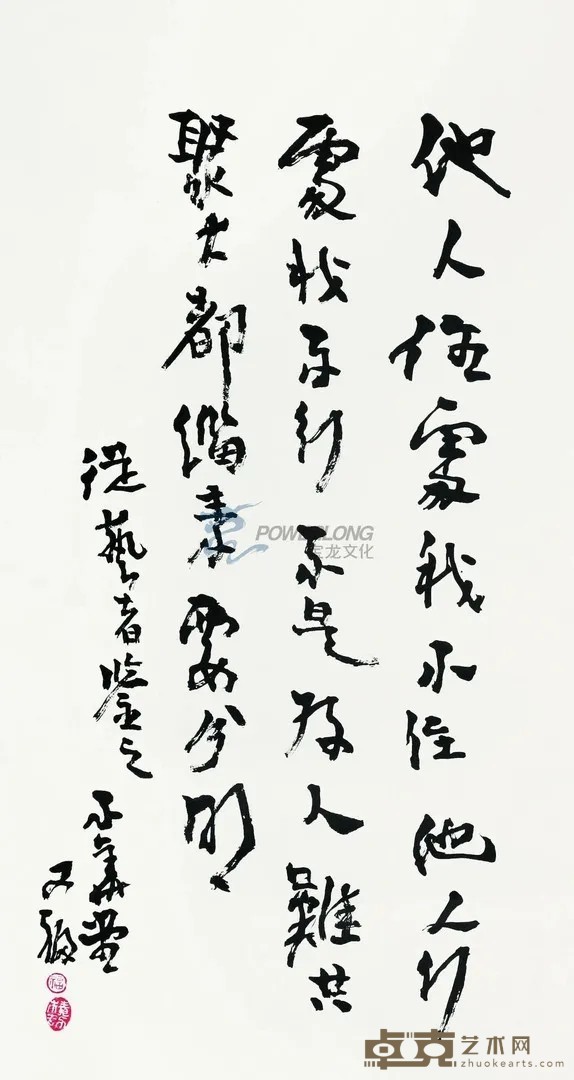 他人住處我不住他人行
處我不行不是人難共
聚大都緇素要分明
從藝者鑒之
POWERLONG
宝龙文化
福
卓克艺术网
zhuokearts.com